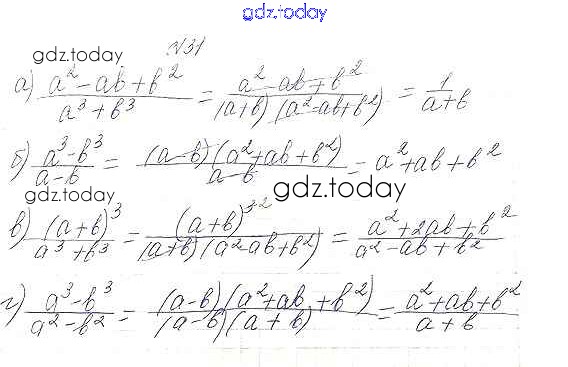 gdz.today
gdz.today
N31
а) (a² - ab + b²)/(a³ + b³) = (a² - ab + b²)/((a+b)(a² - ab + b²)) = 1/(a+b)
б) (a³ - b³)/(a - b) = ((a - b)(a² + ab + b²))/(a - b) = a² + ab + b²
gdz.today
gdz.today
в) (a+b)³/(a³ + b³) = (a+b)³ ²/((a+b)(a² - ab + b²)) = (a² + 2ab + b²)/(a² - ab + b²)
г) (a³ - b³)/(a² - b²) = ((a-b)(a² + ab + b²))/((a-b)(a + b)) = (a² + ab + b²)/(a + b)